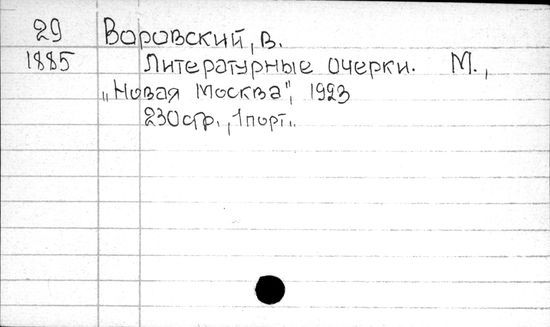 29 Воровский, В.
1885 Литературные очерки. М.,
„Новая Москва", 1923
230стр., 1порт..